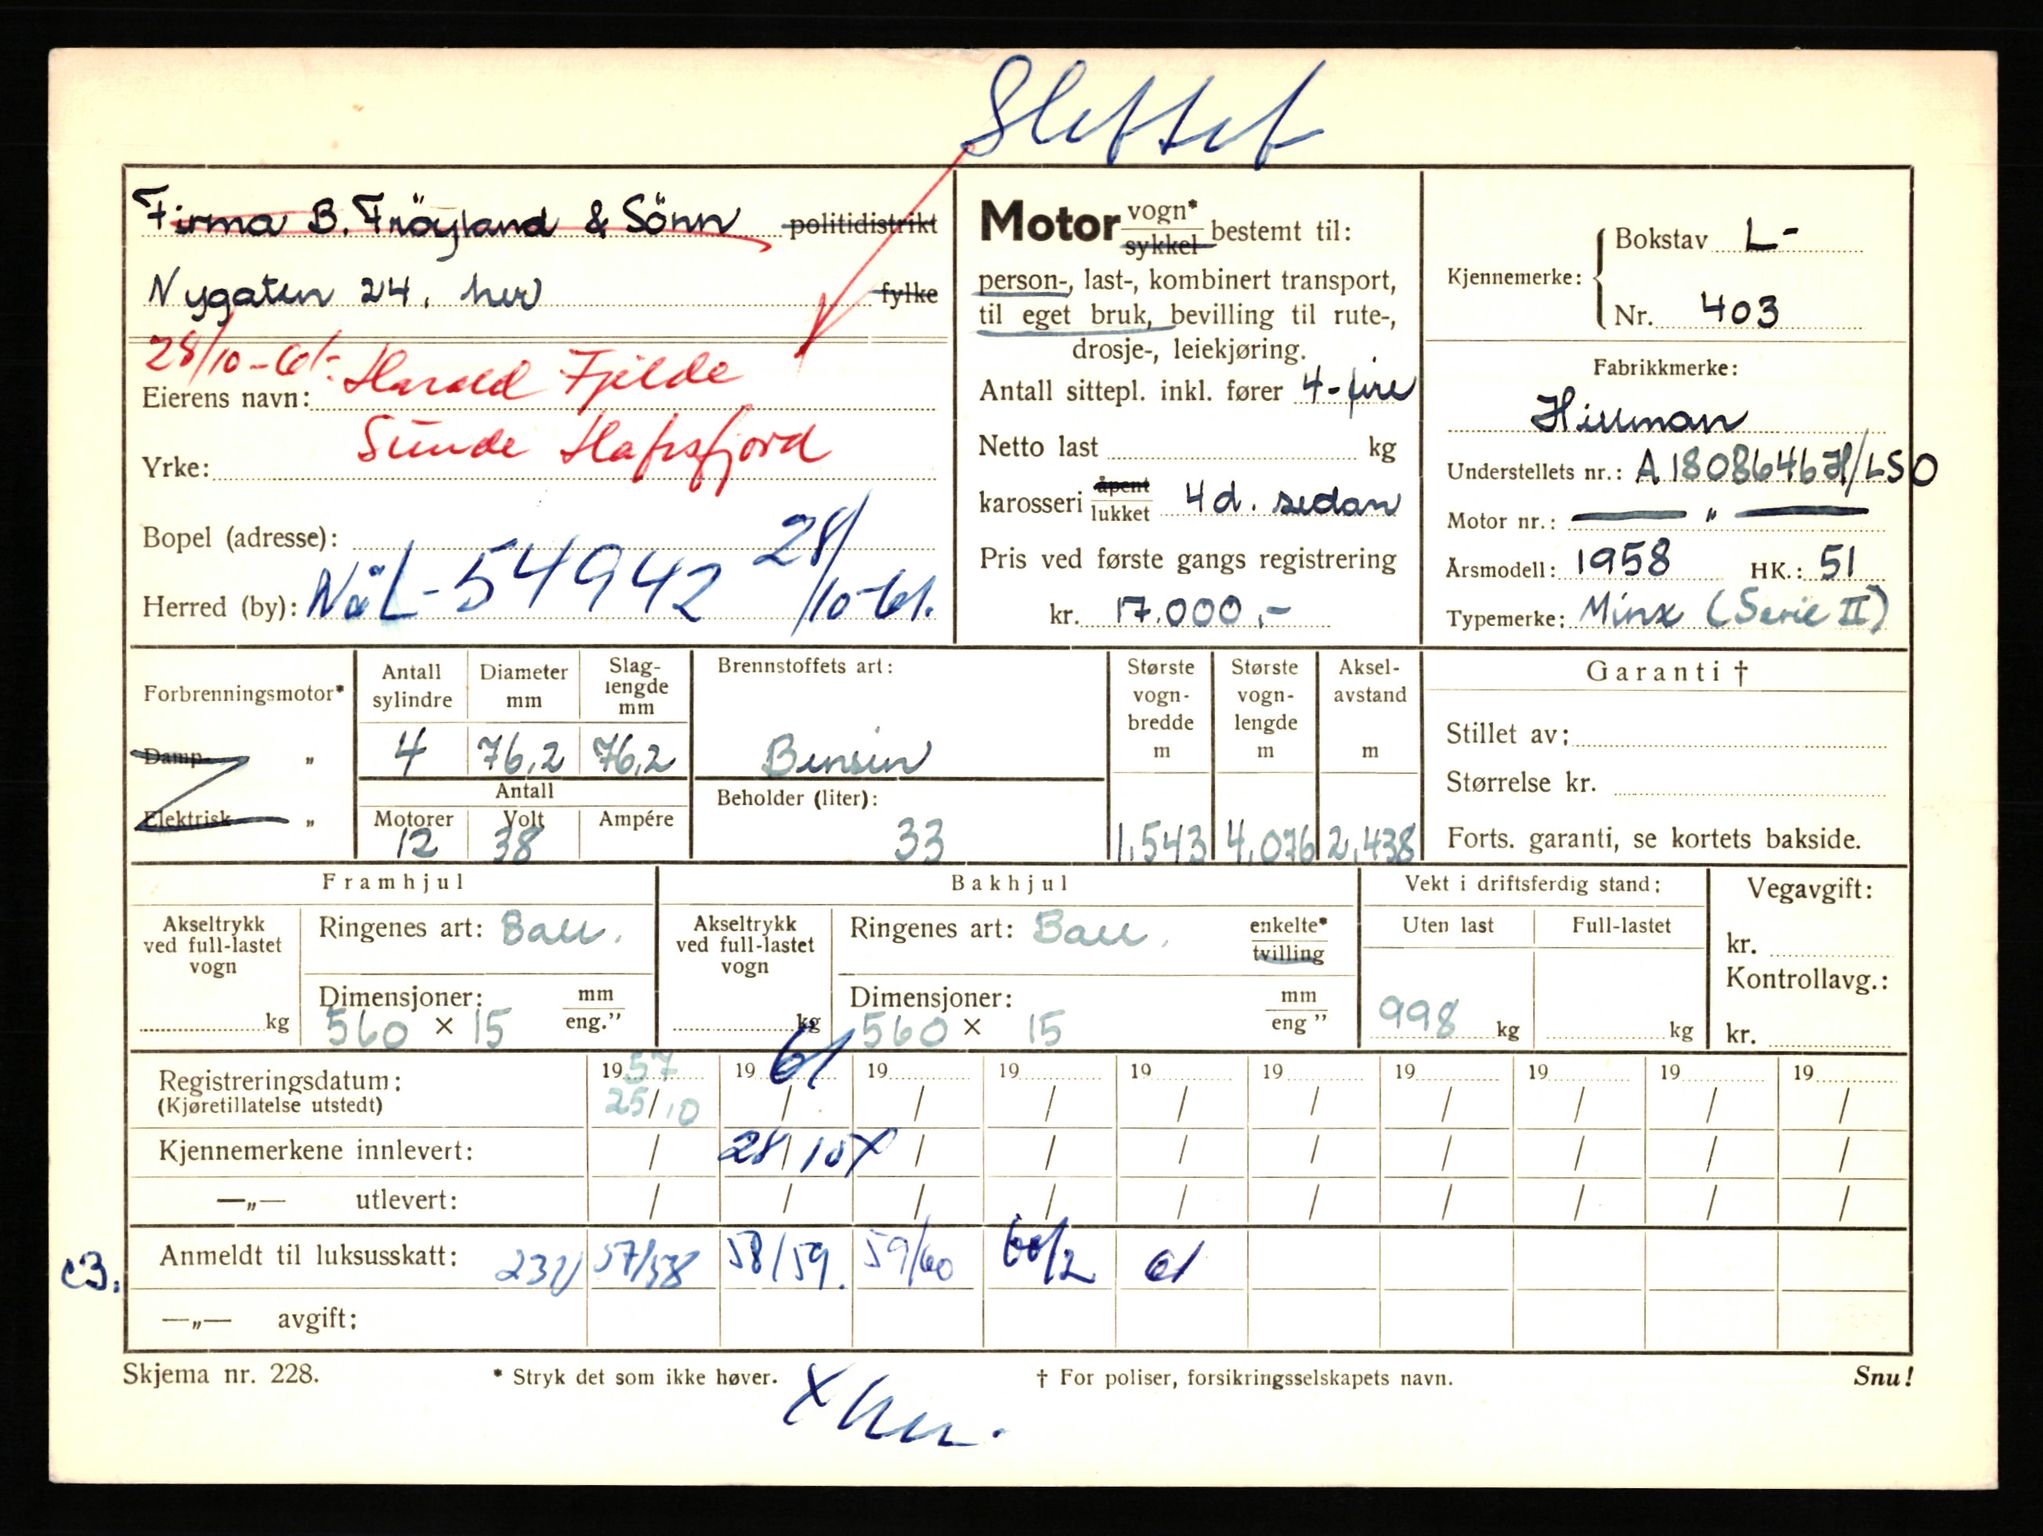 Slettet
Firma B. Fröyland & Sönn politidistrikt
Nygaten 24, her fylke
28/10-61. Harald Fjelde
Eierens navn:
Sunde Hafrsfjord
Yrke:
Bopel (adresse):
28/10-61.
Herred (by): Nå L-54942
Motor vogn* sykkel bestemt til:
person-, last-, kombinert transport,
til eget bruk, bevilling til rute-,
drosje-, leiekjøring.
Antall sittepl. inkl. fører 4-fire
Netto last kg
karosseri åpent lukket 4d. sedan
Pris ved første gangs registrering
kr. 17.000,-
Kjennemerke: Bokstav L-
Nr. 403
Fabrikkmerke:
Hillman
Understellets nr.: A1808646 H/LSO
Motor nr.: — " —
Årsmodell: 1958 HK.: 51
Typemerke: Minx (Serie II)
Forbrenningsmotor*
Damp- "
Elektrisk "
Antall sylindre
4
Diameter mm
76,2
Slaglengde mm
76,2
Antall
Motorer Volt Ampére
12 38
Brennstoffets art:
Bensin
Beholder (liter):
33
Største vogn-bredde m
1,543
Største vogn-lengde m
4,076
Aksel-avstand m
2,438
Garanti †
Stillet av:
Størrelse kr.
Forts. garanti, se kortets bakside.
Framhjul
Akseltrykk
ved full-lastet
vogn
kg
Ringenes art: Ball.
Dimensjoner: mm eng."
560 × 15
Bakhjul
Akseltrykk
ved full-lastet
vogn
kg
Ringenes art: Ball. enkelte* tvilling
Dimensjoner: mm eng"
560 × 15
Vekt i driftsferdig stand:
Uten last Full-lastet
998 kg kg
Vegavgift:
kr.
Kontrollavg.:
kr.
Registreringsdatum: 1957 1961 19 19 19 19 19 19 19 19
(Kjøretillatelse utstedt) 25/10 / / / / / / / / /
Kjennemerkene innlevert: / 28/10 X / / / / / / / /
—„— utlevert: / / / / / / / / / /
Anmeldt til luksusskatt: 57/58 58/59. 59/60 60/2 61
—„— avgift:
Skjema nr. 228. * Stryk det som ikke høver. † For poliser, forsikringsselskapets navn. Snu!
X her.